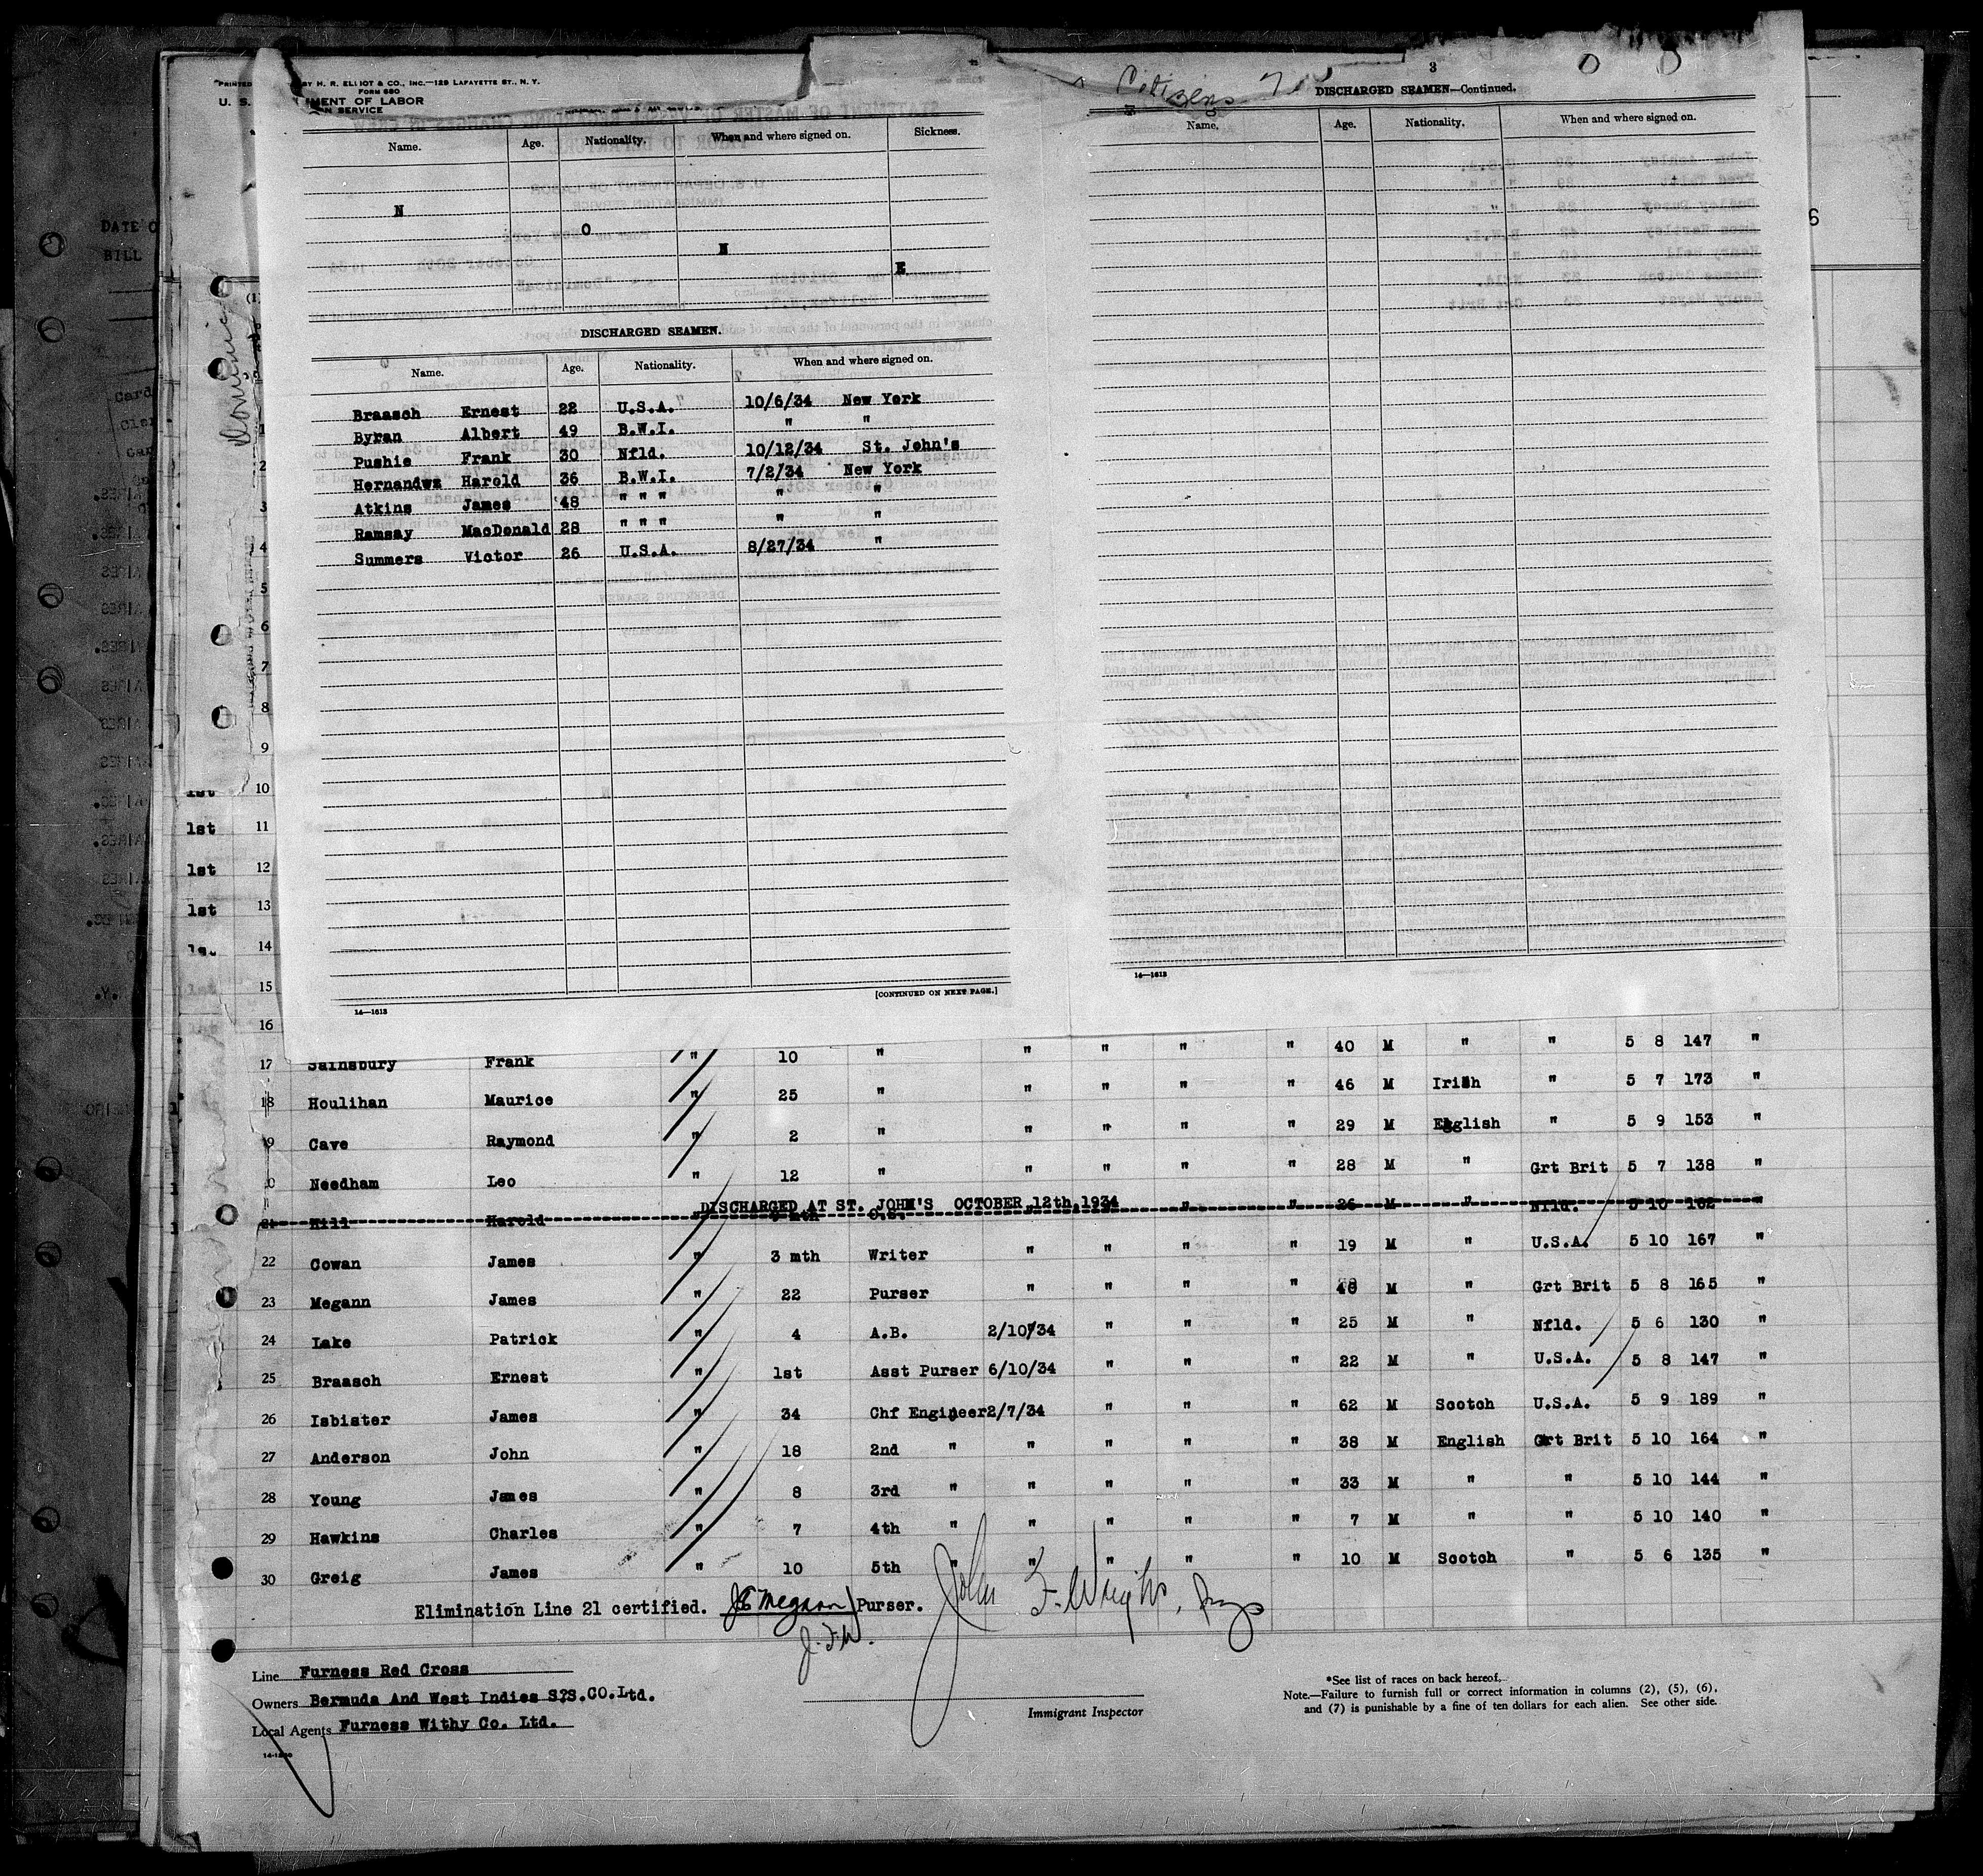 BY H. R. ELLIOT & CO., INC.—129 LAFAYETTE ST., N. Y.
FORM 680
U. S. MENT OF LABOR
N SERVICE
Name. Age. Nationality. When and where signed on. Sickness.
N
O
N
E
DISCHARGED SEAMEN.
Name. Age. Nationality. When and where signed on.
Braasch Ernest 22 U.S.A. 10/6/34 New York
Byran Albert 49 B.W.I. " "
Pushie Frank 30 Nfld. 10/12/34 St. John's
Hernandwz Harold 36 B.W.I. 7/2/34 New York
Atkins James 48 " " " " "
Ramsay MacDonald 28 " " " " "
Summers Victor 26 U.S.A. 8/27/34 "
[CONTINUED ON NEXT PAGE.]
14—1613
Citizens 7
3
DISCHARGED SEAMEN—Continued.
Name. Age. Nationality. When and where signed on.
14—1613
6
DATE O
BILL
Card
1
2
3
4
5
6
7
8
9
1st 10
1st 11
1st 12
1st 13
14
1st 15
16
17 Sainsbury Frank " 10 " " " " " 40 M " " 5 8 147 "
18 Houlihan Maurice " 25 " " " " " 46 M Irish " 5 7 173 "
9 Cave Raymond " 2 " " " " " 29 M English " 5 9 153 "
0 Needham Leo " 12 " " " " " 28 M " Grt Brit 5 7 138 "
DISCHARGED AT ST. JOHN'S OCTOBER 12th, 1934
21 Hill Harold mth O.S. " " 26 M " Nfld. 5 10 162 "
22 Cowan James " 3 mth Writer " " " " 19 M " U.S.A. 5 10 167 "
23 Megann James " 22 Purser " " " " M " Grt Brit 5 8 165 "
24 Lake Patrick " 4 A.B. 2/10/34 " " " 25 M " Nfld. 5 6 130 "
25 Braasch Ernest " 1st Asst Purser 6/10/34 " " " 22 M " U.S.A. 5 8 147 "
26 Isbister James " 34 Chf Engineer 2/7/34 " " " 62 M Scotch U.S.A. 5 9 189 "
27 Anderson John " 18 2nd " " " " " 38 M English Grt Brit 5 10 164 "
28 Young James " 8 3rd " " " " " 33 M " " 5 10 144 "
29 Hawkins Charles " 7 4th " " " " " 7 M " " 5 10 140 "
30 Greig James " 10 5th " " " " " 10 M Scotch " 5 6 135 "
Elimination Line 21 certified. Megann Purser. John F. Wright,
J.F.W.
Line Furness Red Cross
Owners Bermuda And West Indies S?S.CO.Ltd.
Local Agents Furness Withy Co. Ltd.
Immigrant Inspector
*See list of races on back hereof,
Note.—Failure to furnish full or correct information in columns (2), (5), (6),
and (7) is punishable by a fine of ten dollars for each alien. See other side.